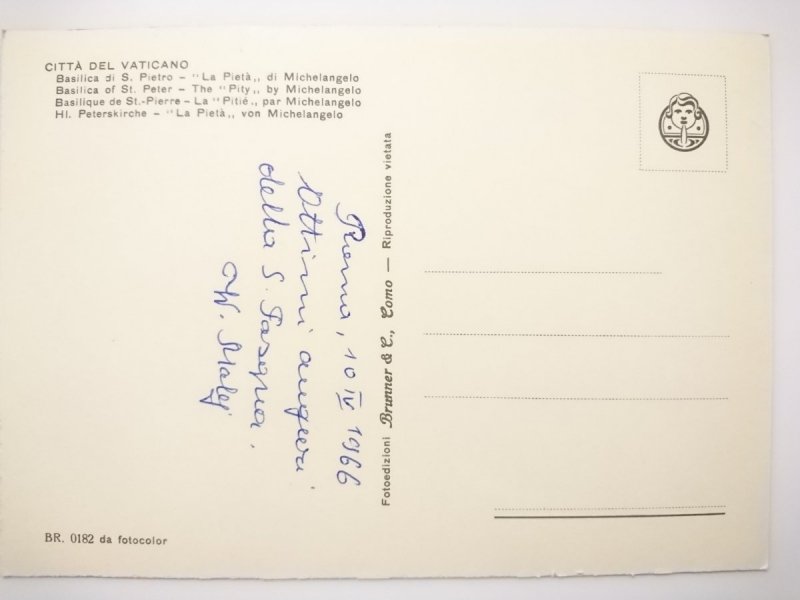 CITTÀ DEL VATICANO
Basilica di S. Pietro – "La Pietà„ di Michelangelo
Basilica of St. Peter – The "Pity„ by Michelangelo
Basilique de St.-Pierre – La "Pitié„ par Michelangelo
Hl. Peterskirche – "La Pietà„ von Michelangelo
Roma, 10 IV 1966
Ottimi auguri
della S. Pasqua.
W.
Fotoedizioni Brunner & C., Como — Riproduzione vietata
BR. 0182 da fotocolor